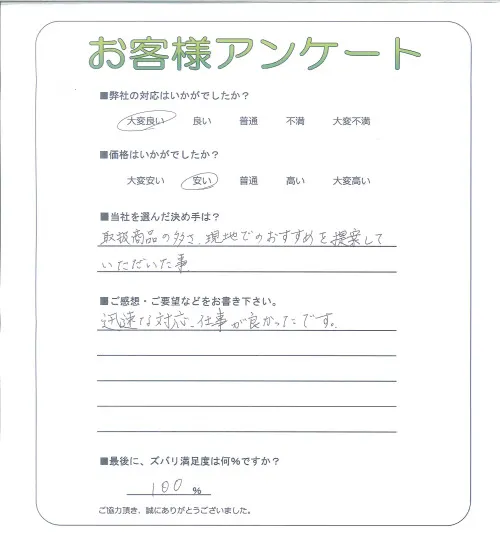 お客様アンケート
■弊社の対応はいかがでしたか？
大変良い 良い 普通 不満 大変不満
■価格はいかがでしたか？
大変安い 安い 普通 高い 大変高い
■当社を選んだ決め手は？
取扱商品の多さ、現地でのおすすめを提案して
いただいた事
■ご感想・ご要望などをお書き下さい。
迅速な対応、仕事が良かったです。
■最後に、ズバリ満足度は何%ですか？
100 %
ご協力頂き、誠にありがとうございました。